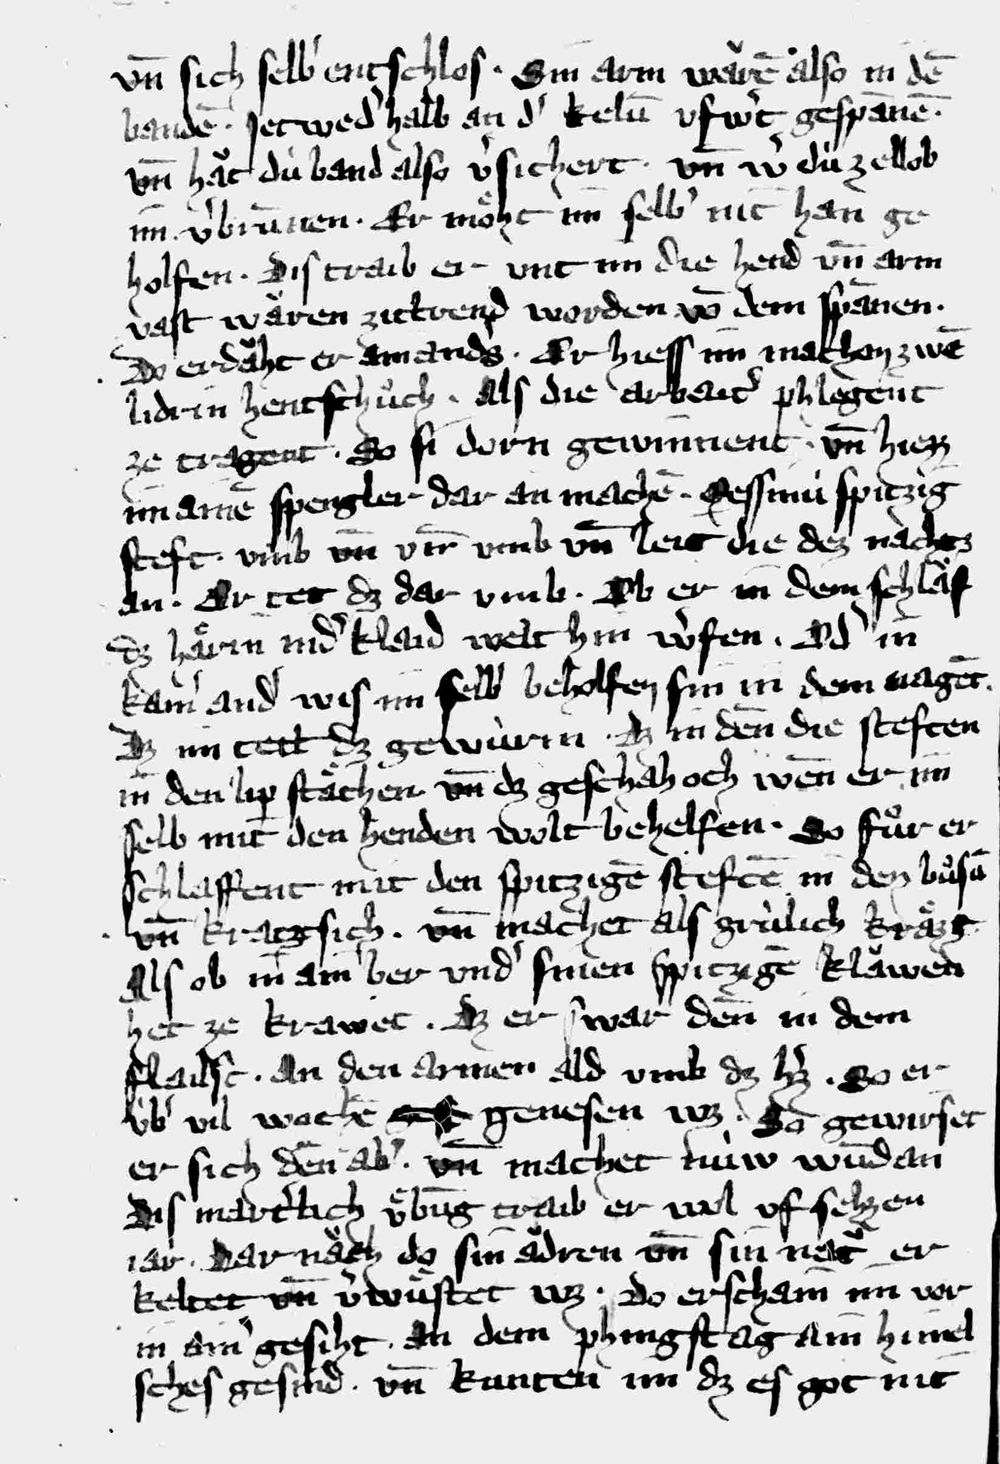 vn̄ sich selb' entschlos . Sin arm wăre̅ also in de̅
bande̅ . Jetwed' halb an d' kelu̅ vfw't gespāne̅ .
vn̄ hăt dú band also v'sichert . vn̄ w' dú zell ob
im v'brūnen . Er mo̊ht im selb' nit han ge
holfen . Dis traib er vnt im die hend vn̄ arm
vast wăren zittrend worden vō dem spānen .
Do erdăht er am and's . Er hiess im machen zwe̅
lidrin hentschůch . Als die arbait' phlegent
ze tragent . So si dorn gewinnent . vn̄ hiess
im aine̅ spengler dar an mache̅ . Messinú spitzig
steft . vmb vn̄ vm̄ vmb vn̄ leit die dez nachtz
an . Er tet dz dar vmb . Ob er in dem schlăf
dz hărin nid' klaid welt hin w'fen . Od' in
kain' and' wis im selb' beholfen sin in dem nage̅t .
Dz im tett dz gewúrm . Dz in den̄ die steften
in den lip stăchen vn̄ dz geschah och wen̄ er im
selb mit den henden wolt behelfen . So fůr er
schlaffent mit den spitzige̅ stefte̅ in den bůse̅
vn̄ kratzt sich . vn̄ machet als grúlich krăzt
Als ob in ain ber vnd' sinen spitzige̅ klăwen
het ze krawet . Dz er swar den̄ in dem
flaisc . An den armen ald vmb dz h'z . So er
úb' vil woche̅ genesen wz . So gewirset
er sich den̄ ab' . vn̄ machet núw wūdan
Dis mart'lich ůbūg traib er wol vf sehzen
iar . Dar năch do sin ădren vn̄ sin nat' er
keltet vn̄ v'wůstet wz . Do erschain im vor
in ain' gesiht . An dem phingstag ain himel
sches gesind . vn̄ kunten im dz es got nit